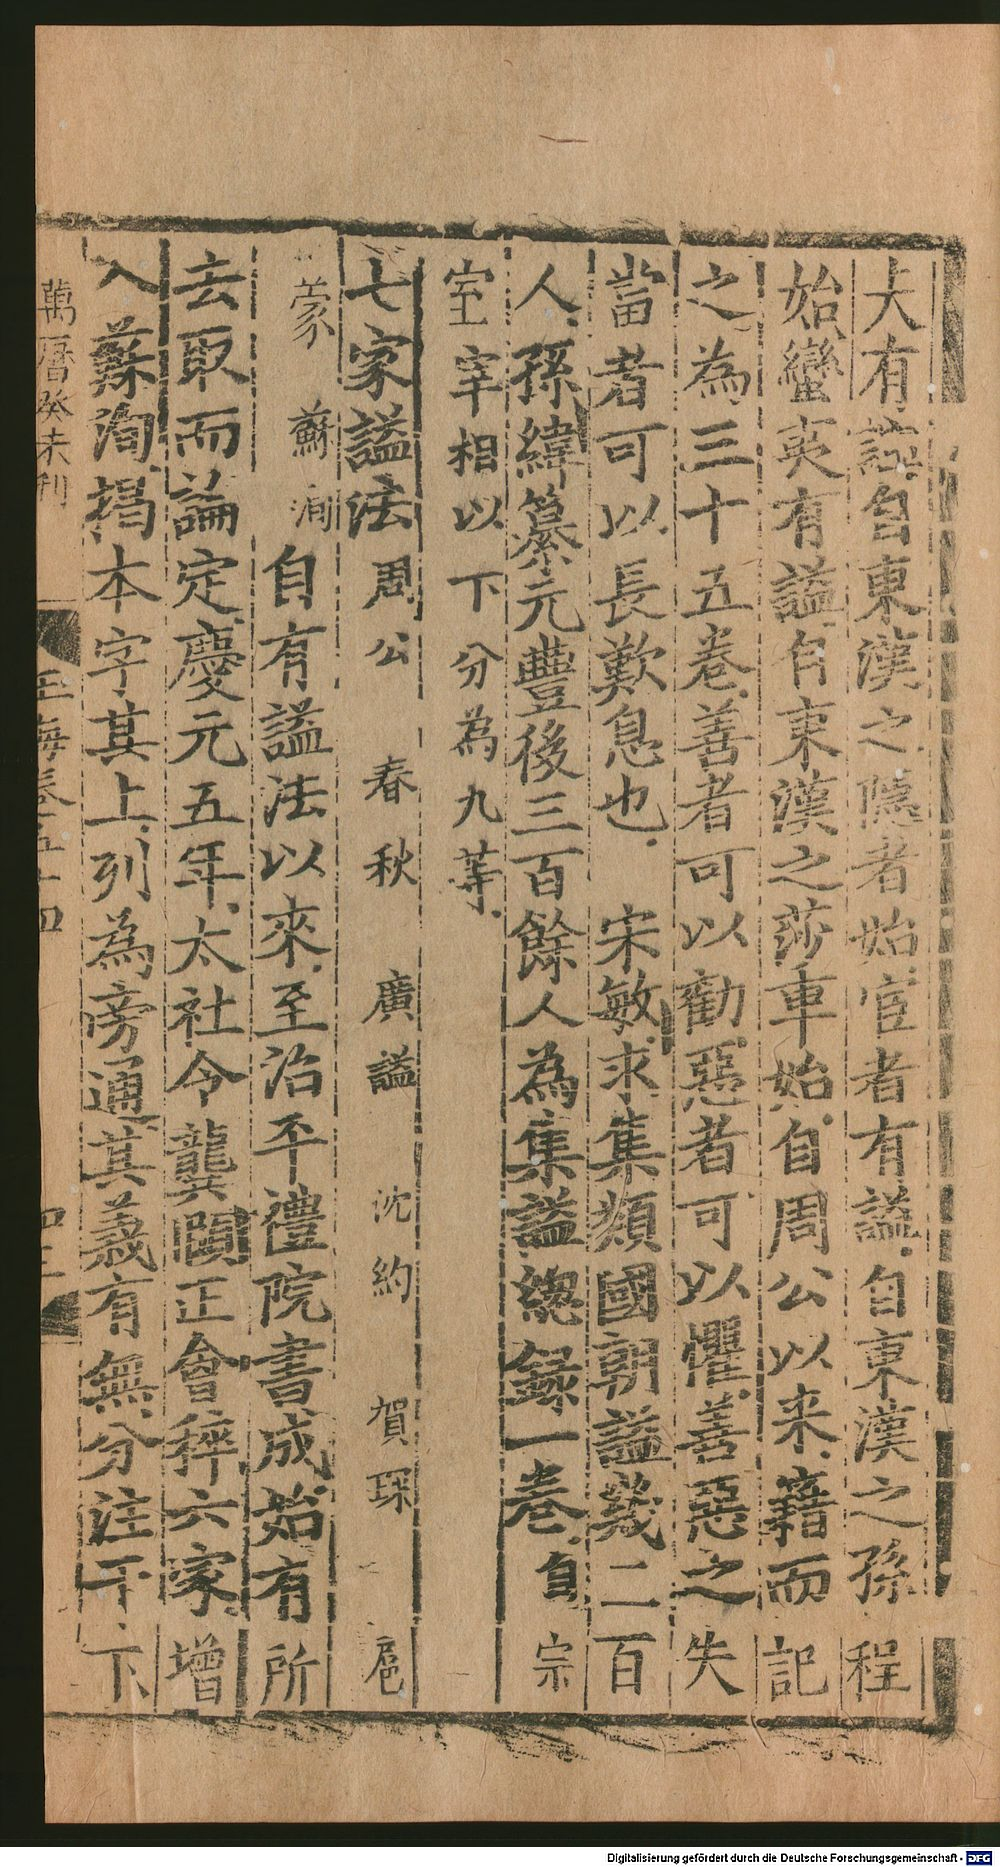 大有諡自東漢之隱者始宦者有諡自東漢之孫程
始蠻夷有諡自東漢之莎車始自周公以来籍而記
之為三十五卷善者可以勸惡者可以懼善惡之失
當者可以長歎息也 宋敏求集類國朝諡幾二百
人孫緯纂元豐後三百餘人為集諡緫録一卷自宗
室宰相以下分為九等
七家諡法周公 春秋 廣諡 沈約 賀琛 扈
蒙 蘇洵自有諡法以來至治平禮院書成始有所
去取而論定慶元五年太社令龔頤正會稡六家增
入蘇洵揭本字其上列為旁通其義有無分注于下
萬曆癸未刊
玉海卷五十四
四三
Digitalisierung gefördert durch die Deutsche Forschungsgemeinschaft - DFG